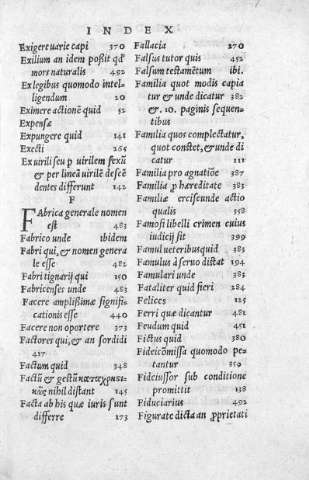 INDEX
Exigere uarie capi 370
Exilium an idem poßit qd
mors naturalis 492
Ex legibus quomodo intel-
ligendum 20
Eximere actionē quid 52
Expensæ
Expungere quid 141
Execti 265
Ex uirili seu p uirilem sexū
& per lineā uirilē descē
dentes differunt 142
F
FAbrica generale nomen
est 483
Fabrico unde ibidem
Fabri qui, & nomen genera
le esse 482
Fabri tignarij qui 150
Fabricenses unde 483
Facere amplißimæ signifi
cationis esse 440
Facere non oportere 373
Factores qui, & an sordidi
427
Factum quid 348
Factū & gestū καταχρησι-
κῶς nihil distant 145
Facta ab his quæ iuris sunt
differre 173
Fallacia 270
Falsus tutor quis 452
Falsum testamētum ibi.
Familia quot modis capia
tur & unde dicatur 382
& .10. paginis sequen-
tibus
Familia quos complectatur,
quot constet, & unde di
catur 111
Familia pro agnatiōe 387
Familia p hæreditate 383
Familiæ erciscundæ actio
qualis 358
Famosi libelli crimen cuius
iudicij sit 399
Famul ueteribus quid 385
Famulus à seruo distat 194
Famulari unde 385
Fataliter quid fieri 284
Felices 125
Ferri quæ dicantur 481
Feudum quid 451
Fictus quid 380
Fideicōmissa quomodo pe-
tantur 359
Fideiussor sub conditione
promittit 138
Fiduciarius 492
Figurate dicta an pprietati